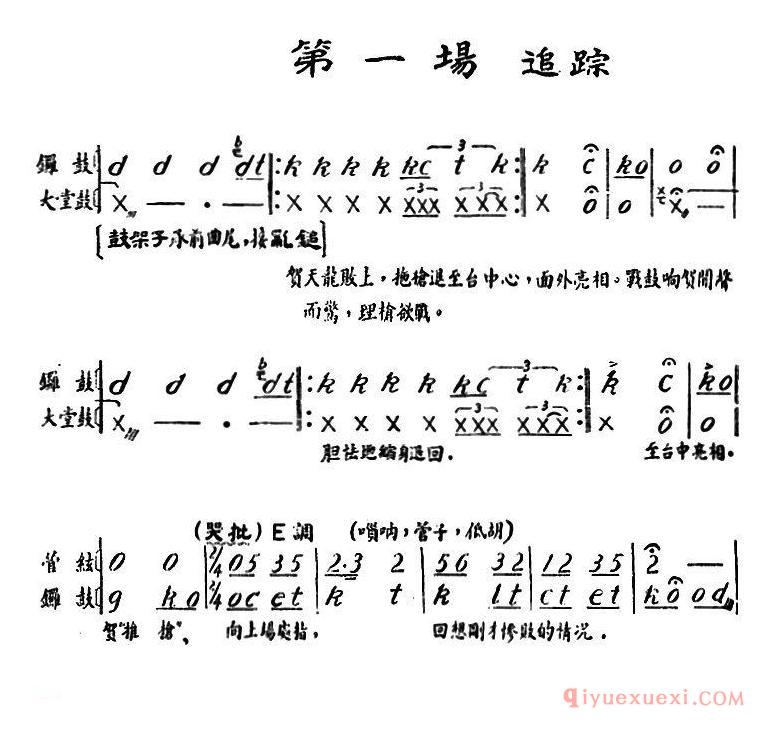 第一場 追踪
鑼鼓 d d d dt k k k k kc t k k c ko o o
3
大堂鼓 X — · — X X X X XXX XXX X o o X —
3 3
[鼓架子承前曲尾,接亂鎚]
賀天龍敗上,拖槍退至台中心,面外亮相。戰鼓响賀聞聲
而驚,理槍欲戰。
鑼鼓 d d d dt k k k k kc t k k c ko
3
大堂鼓 X — · — X X X X XXX XXX X o o
3 3
胆怯地縮身退回. 至台中亮相.
(哭批) E調 (嗩呐,管子,低胡)
管絃 0 0 2/4 05 35 2·3 2 56 32 12 35 2 —
鑼鼓 g ko 2/4 oc et k t k lt ct et ko od
賀"推槍", 向上場處指, 回想剛才慘敗的情况.
qiyuexuexi.COM